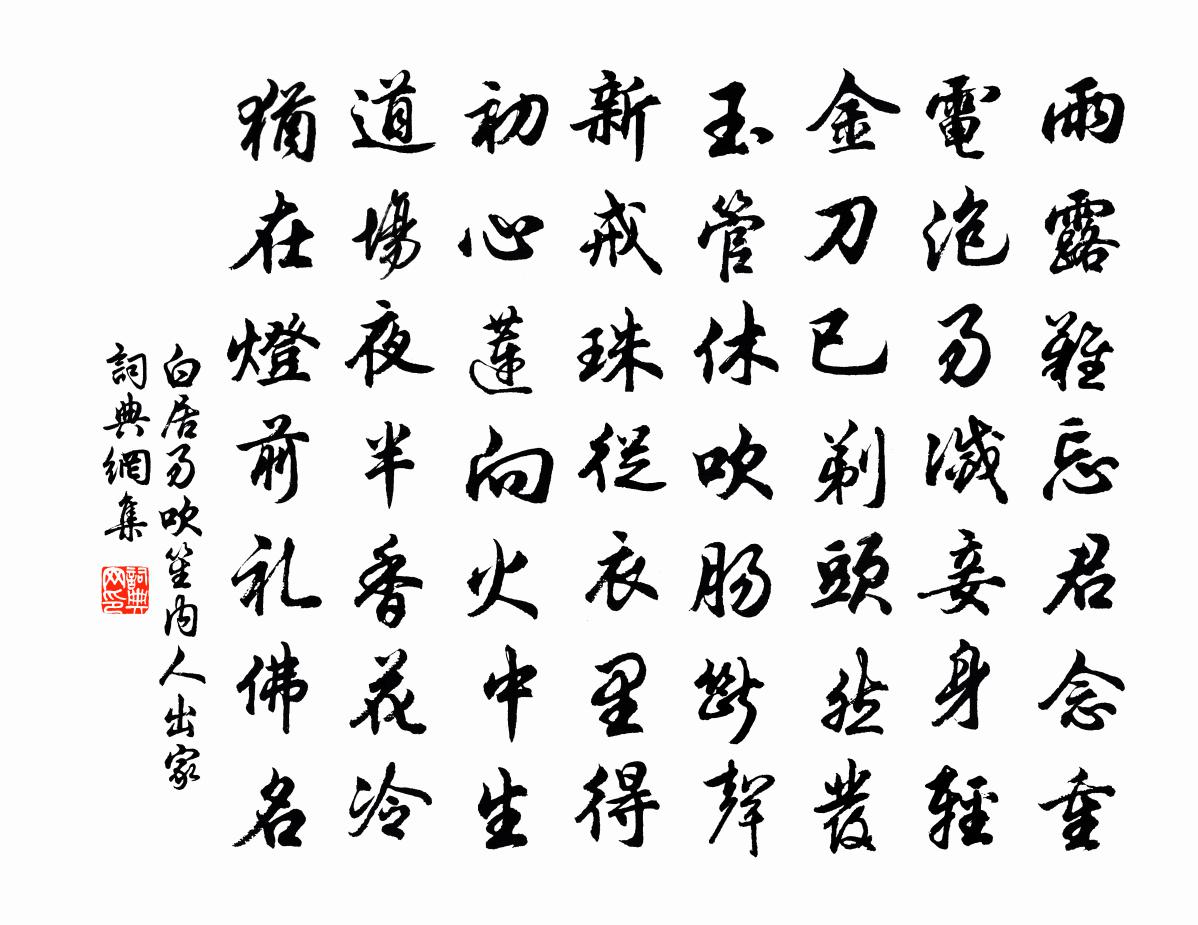 雨露難忘君念重
電泡易滅妾身輕
金刀已剃頭然發
玉管休吹腸斷聲
新戒珠從衣里得
初心蓮向火中生
道場夜半香花冷
猶在燈前礼佛名
白居易吹笙內人出家
詞典網集
詞典网印